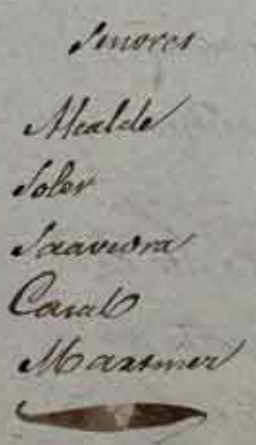 Señores
Alcalde
Soler
Saavedra
Casal
Martinez